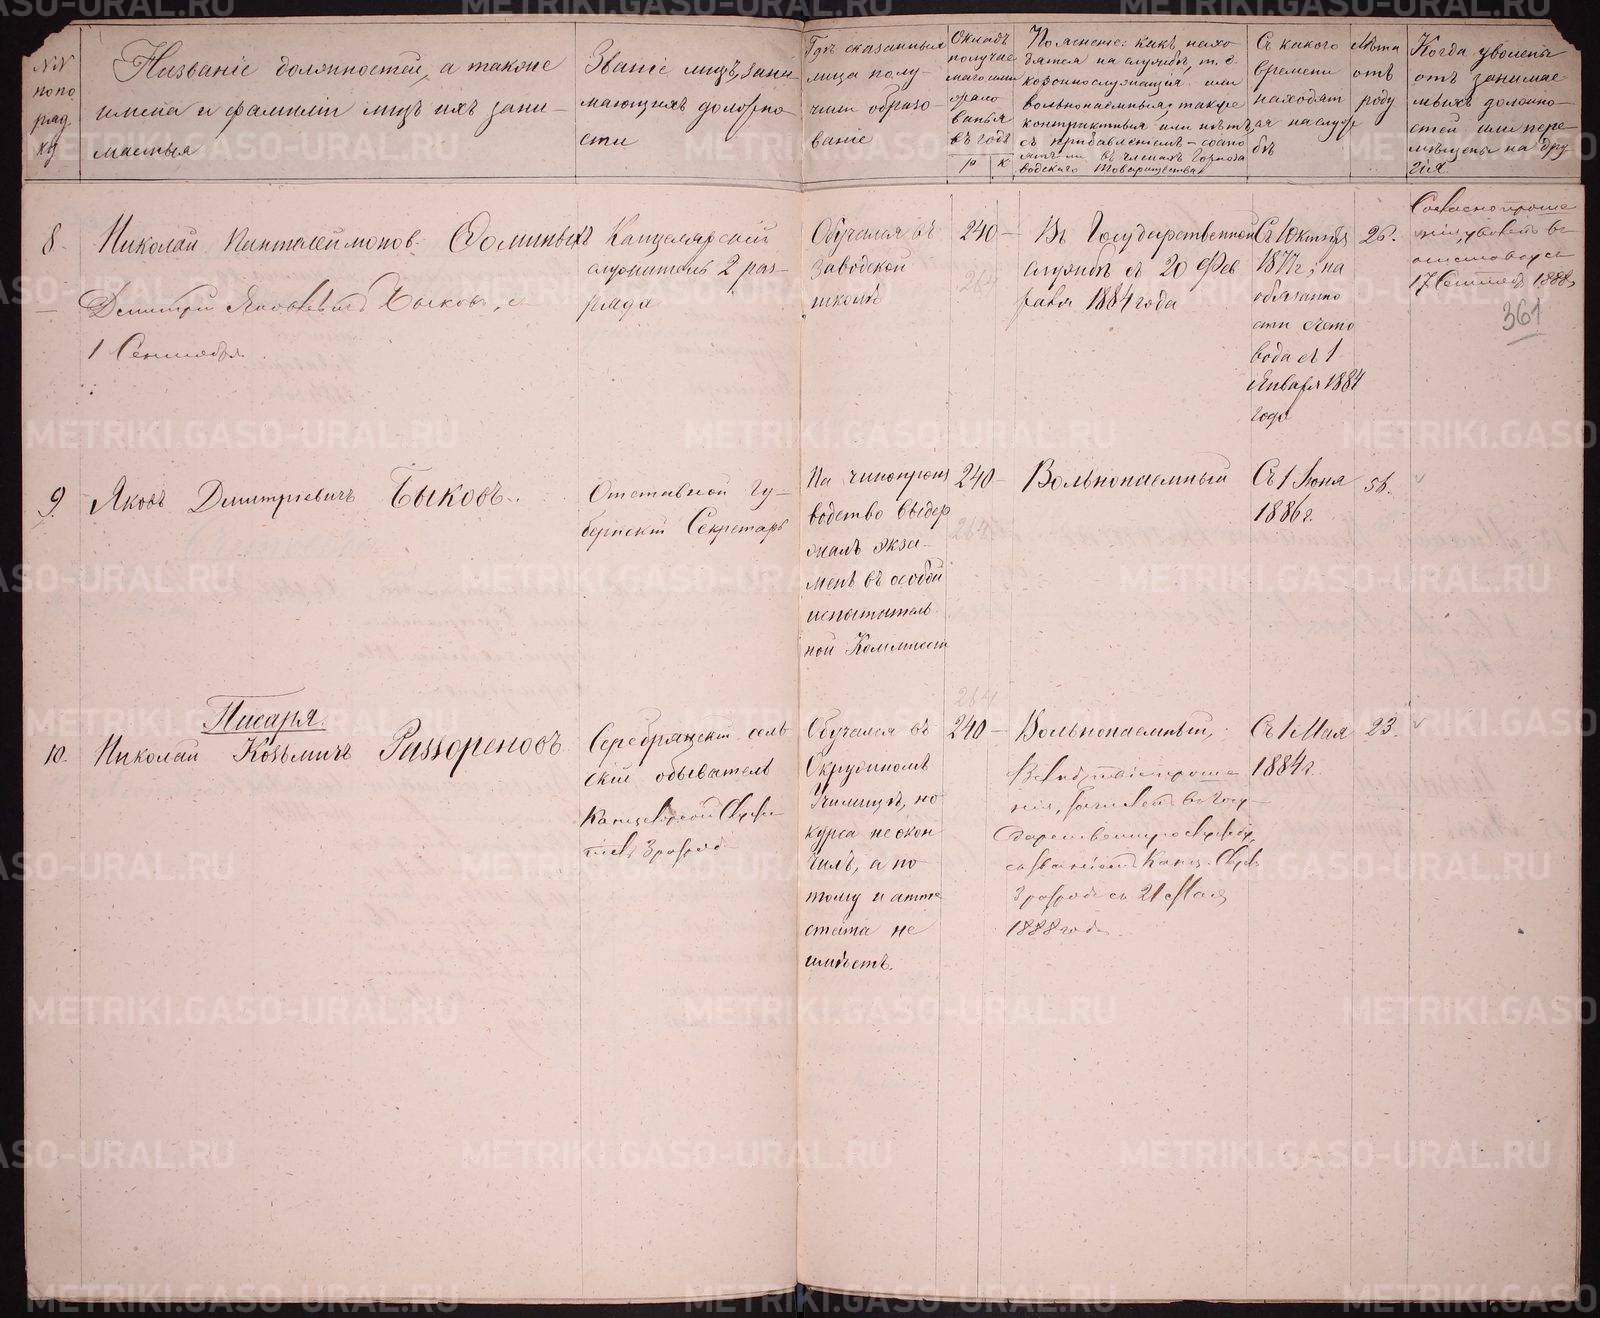 NN по по ряд ку
Названіе должностей, а также
имена и фамиліи лицъ ихъ зани-
маемыя
Званіе лицъ, зани
мающихъ должно
сти
Гдѣ сказанныя
лица полу-
чили образо
ваніе
Окладъ
получае
маго ими
жало
ванья
въ годъ
р к
Поясненіе: какъ нахо-
дятся на службѣ, т. е.
кореннослужащія или
вольнонаемныя, также
контрактныя или нѣтъ,
съ прибавленіемъ – состо
ятъ-ли въ членахъ Горноза
водскаго Товарищества
Съ какого
времени
находят
ся на служ
бѣ
Лѣта
отъ
роду
Когда уволены
отъ занимае
мыхъ должно-
стей или пере-
мѣщены на дру
гія.
8.
Николай Пантелеймонов. Ѳоминыхъ
Дмитрій Яковлевичъ Быковъ, с
1 Сентября
Канцелярскій
служитель 2 раз-
ряда
Обучался въ
заводской
школѣ
240 –
264
Въ Государственной
службѣ съ 20 Фев
раля 1884 года
Съ 1 Октября
1877 г; на
обязанно
сти счето
вода съ 1
Января 1884
года
26.
Согласно проше
нія, уволенъ въ
17 Сентября 1888 г
361
9.
Яковъ Дмитріевичъ Быковъ.
Отставной Гу-
бернскій Секретарь
На чинопроиз
водство выдер
жалъ экза-
менъ въ особой
испытатель
ной Комлисіи
240 –
264
Вольнонаемный
Съ 1 Іюня
1886 г.
56.
Писаря.
10.
Николай Козьмичъ Разсореновъ.
Серебрянскій сель
скій обыватель
Канцелярскій Служи-
тель 3 разряд
Обучался въ
Окружномъ
Училищѣ, но
курса не окон
чилъ, а по
тому и атте
стата не
имѣетъ.
264
240 –
Вольнонаемный,
Вслѣдствіе проше
нія, зачисленъ въ Госу-
дарственную службу,
съ званіемъ Канц. Служ
3 разряда съ 21 Мая
1888 года.
Съ 1 Мая
1884 г.
23.
METRIKI.GASO-URAL.RU